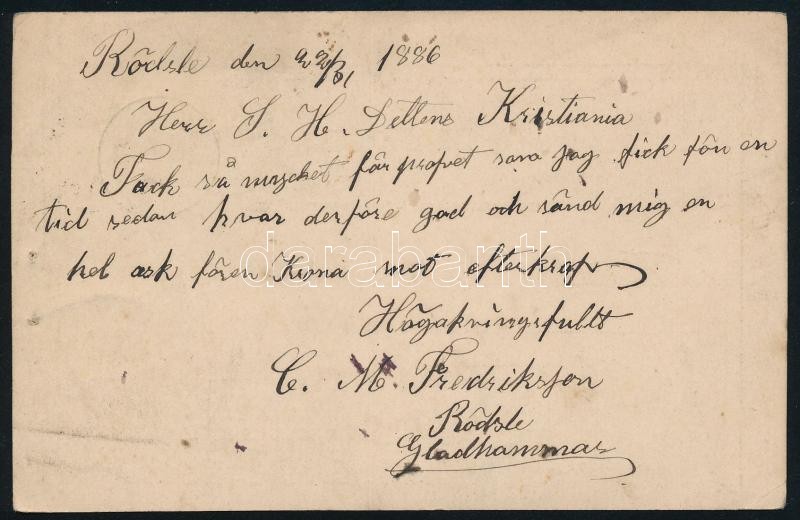 Rödsle den 22/01 1886
Herr S. H. Dettens Kristiania
Tack så mycket för profvet som jag fick för en
tid sedan hvar derföre god och sänd mig en
hel ask för en Krona mot efterkraf
Högaktningsfullt
C. M. Fredriksson
Rödsle
Gladhammar
darabanth